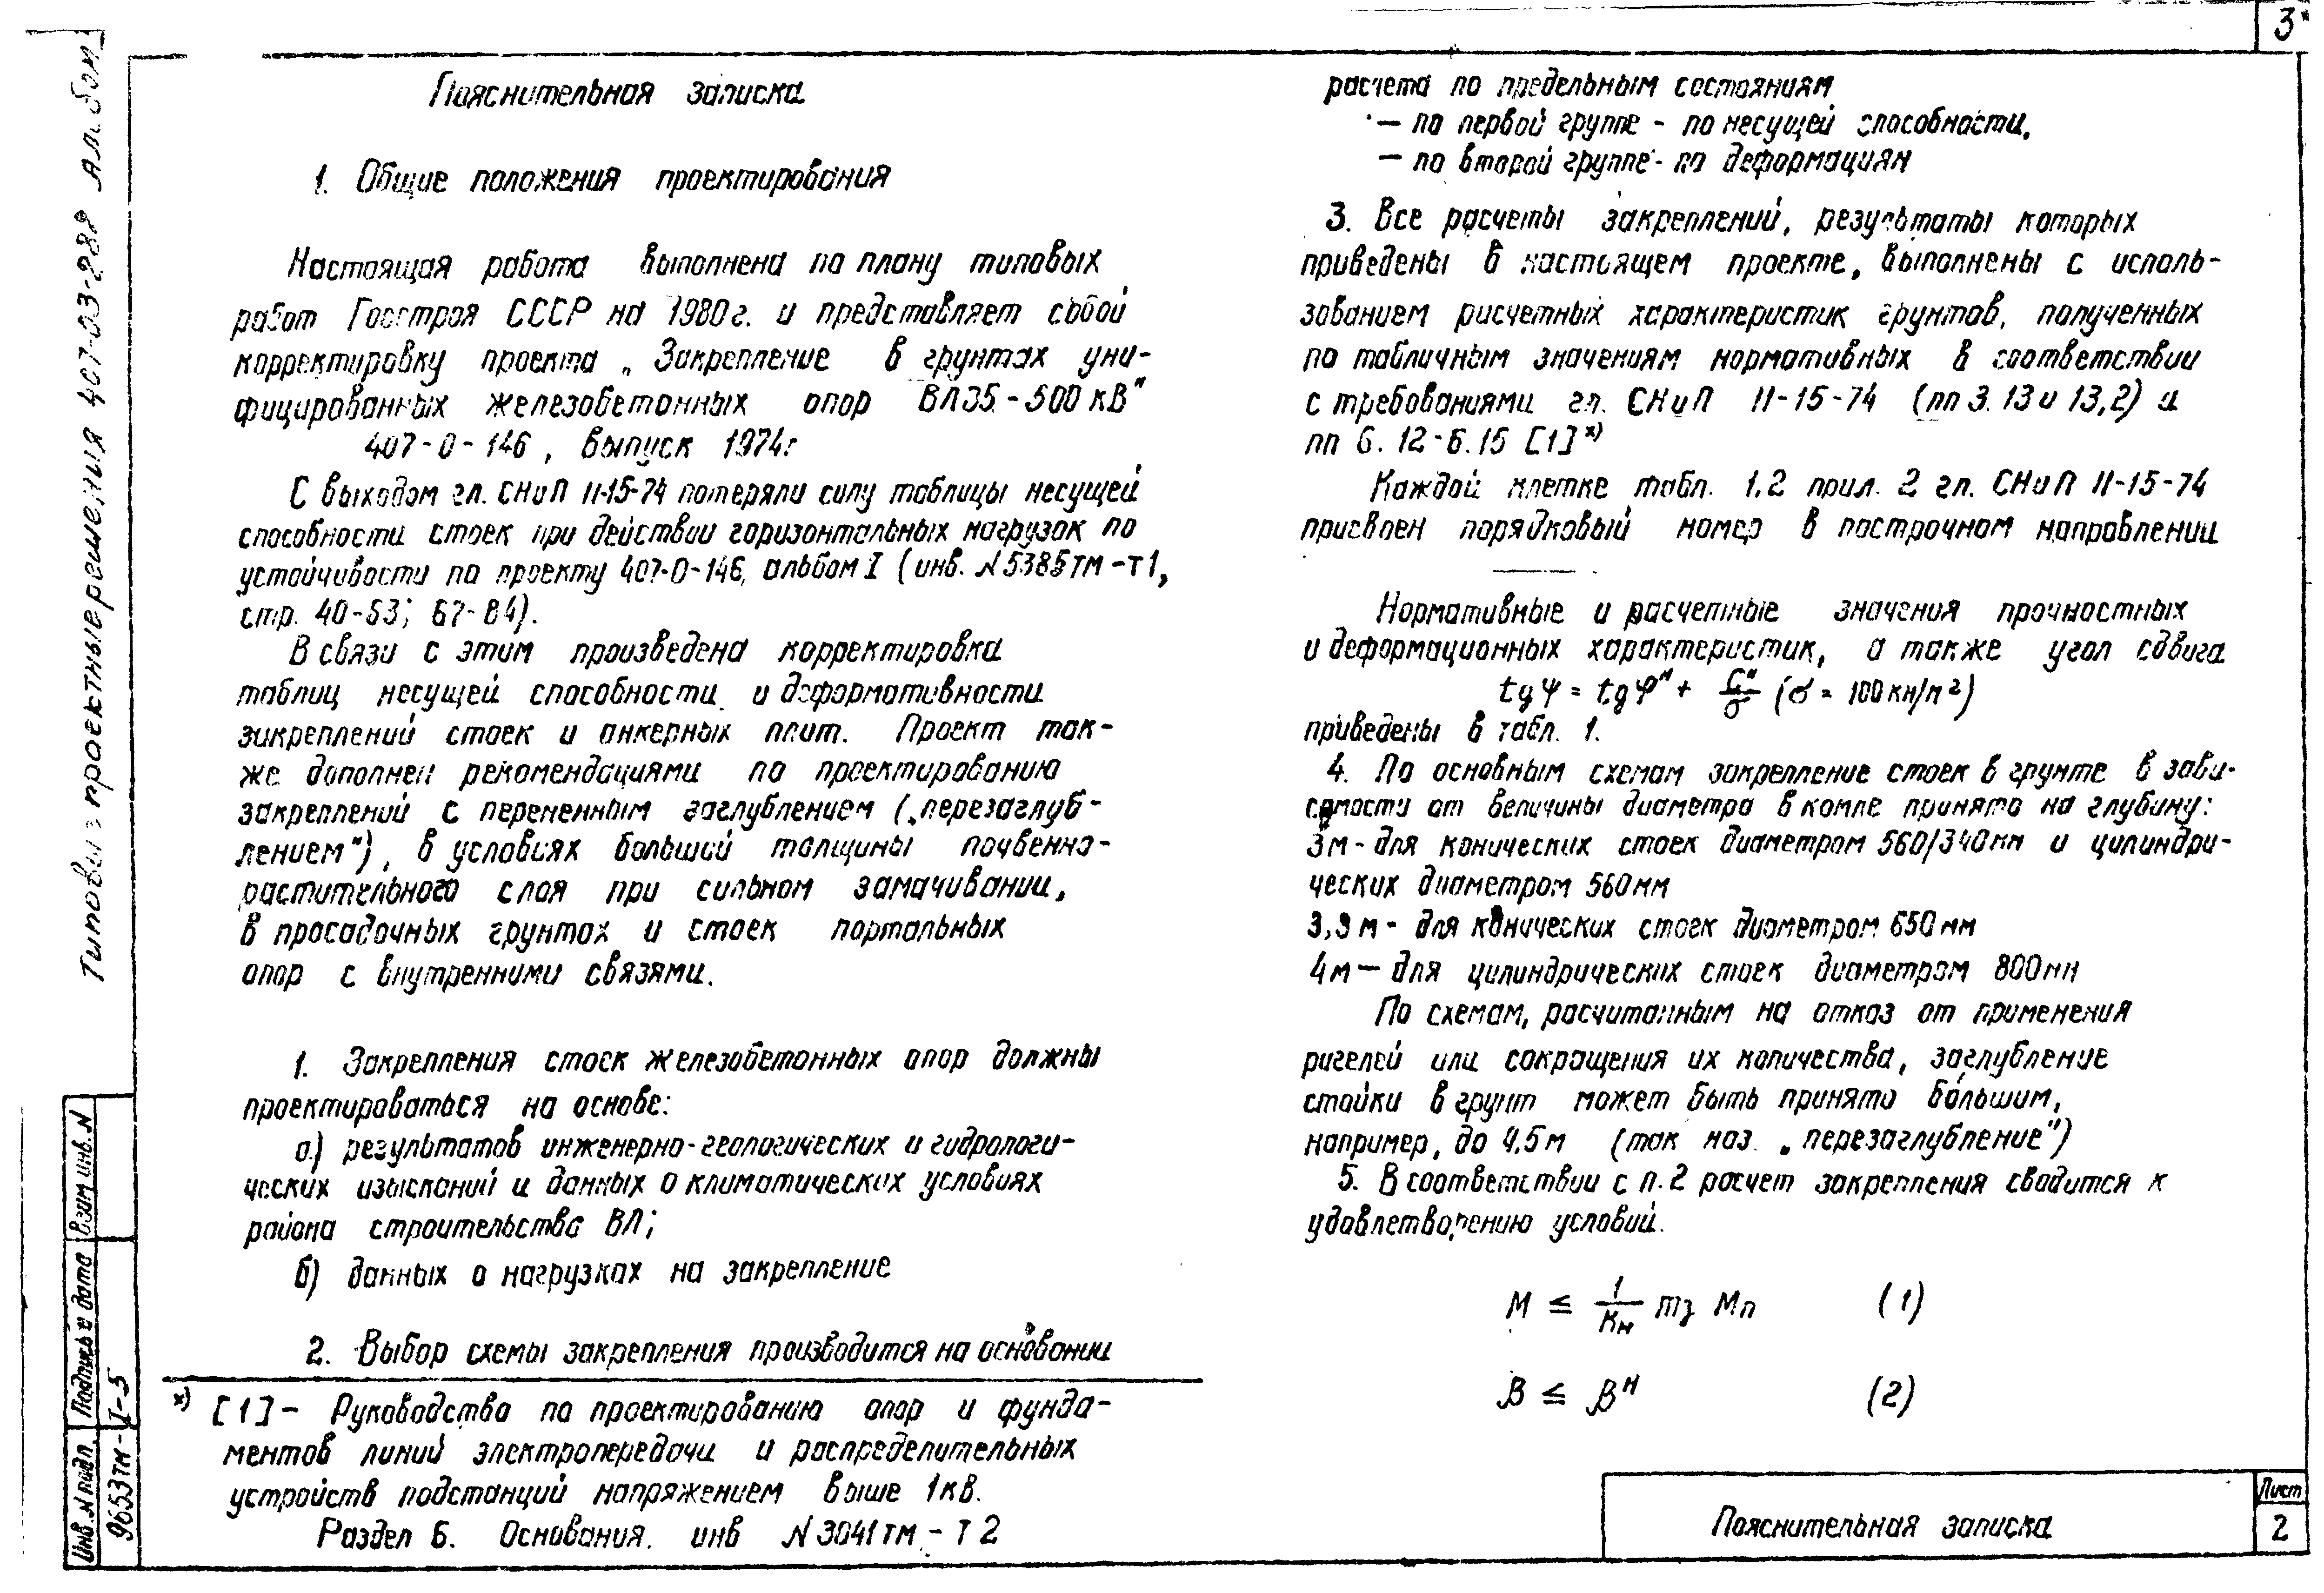 3
Пояснительная записка
1. Общие положения проектирования
Настоящая работа выполнена по плану типовых
работ Госстроя СССР на 1980г. и представляет собой
корректировку проекта „Закрепление в грунтах уни-
фицированных железобетонных опор ВЛ35-500кВ"
407-0-146, выпуск 1974г
С выходом гл. СНиП II-15-74 потеряли силу таблицы несущей
способности стоек при действии горизонтальных нагрузок по
устойчивости по проекту 407-0-146, альбом I (инв. N5385тм-т1,
стр. 40-53; 67-84).
В связи с этим произведена корректировка
таблиц несущей способности и деформативности
закреплений стоек и анкерных плит. Проект так-
же дополнен рекомендациями по проектированию
закреплений с переменным заглублением („перезаглуб-
лением"), в условиях большой толщины почвенно-
растительного слоя при сильном замачивании,
в просадочных грунтах и стоек портальных
опор с внутренними связями.
1. Закрепления стоек железобетонных опор должны
проектироваться на основе:
а) результатов инженерно-геологических и гидрологи-
ческих изысканий и данных о климатических условиях
района строительства ВЛ;
б) данных о нагрузках на закрепление
2. Выбор схемы закрепления производится на основании
х) [1]- Руководство по проектированию опор и фунда-
ментов линий электропередачи и распределительных
устройств подстанций напряжением выше 1кв.
Раздел 6. Основания. инв N3041тм-Т2
расчета по предельным состояниям
— по первой группе - по несущей способности,
— по второй группе - по деформациям
3. Все расчеты закреплений, результаты которых
приведены в настоящем проекте, выполнены с исполь-
зованием расчетных характеристик грунтов, полученных
по табличным значениям нормативных в соответствии
с требованиями гл. СНиП II-15-74 (пп 3.13 и 13,2) и
пп 6.12-6.15 [1]х)
Каждой клетке табл. 1,2 прил. 2 гл. СНиП II-15-74
присвоен порядковый номер в построчном направлении
Нормативные и расчетные значения прочностных
и деформационных характеристик, а также угол сдвига
tgψ = tgφᴴ + Cᴴ/σ (σ = 100кн/м²)
приведены в табл. 1.
4. По основным схемам закрепление стоек в грунте в зави-
симости от величины диаметра в комле принято на глубину:
3м-для конических стоек диаметром 560/340мм и цилиндри-
ческих диаметром 560мм
3,3м- для конических стоек диаметром 650мм
4м— для цилиндрических стоек диаметром 800мм
По схемам, расчитанным на отказ от применения
ригелей или сокращения их количества, заглубление
стойки в грунт может быть принято бо́льшим,
например, до 4,5м (так наз. „перезаглубление")
5. В соответствии с п.2 расчет закрепления сводится к
удовлетворению условий.
М ≤ 1/Кн mз Мп (1)
β ≤ βᴴ (2)
Пояснительная записка
Лист
2
Типовые проектные решения 407-03-288 Альбом
Взам инв. N
Подпись и дата
Инв. N подл.
9653тм-I-5